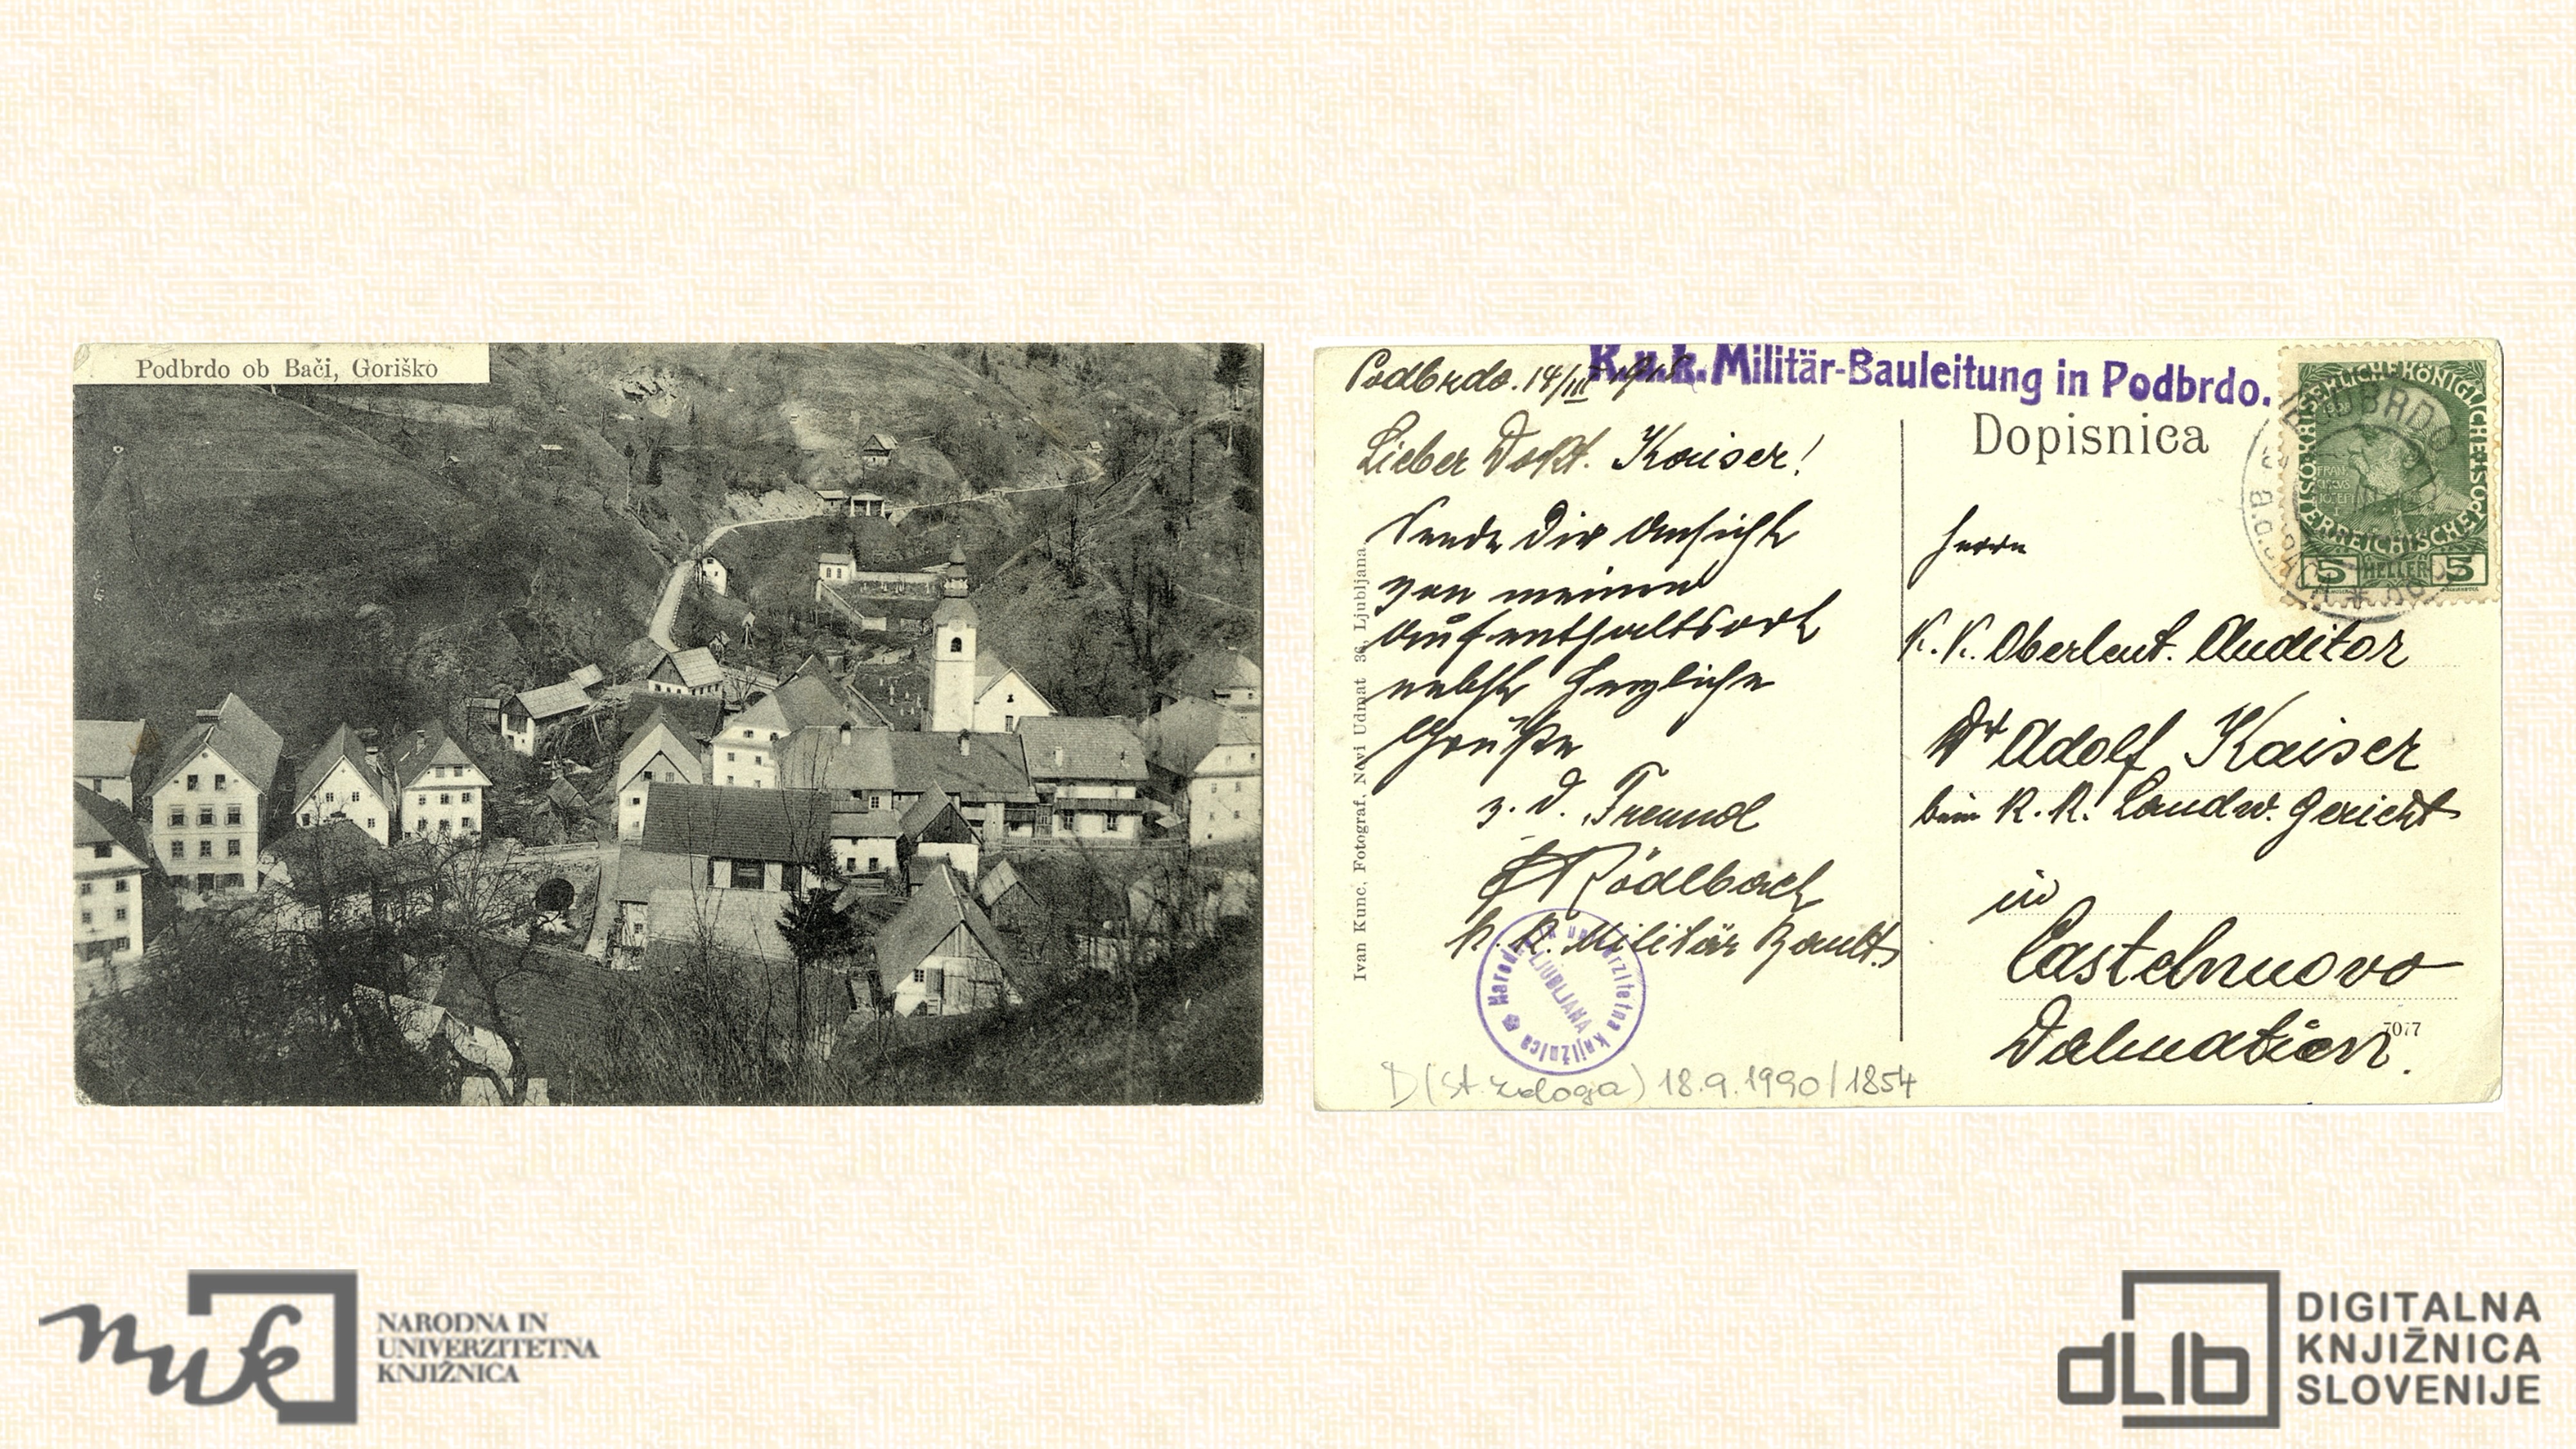 Podbrdo ob Bači, Goriško
Podbrdo. 14/III
K.u.k. Militär-Bauleitung in Podbrdo.
Lieber Dokt. Kaiser!
Sende Dir Ansicht
von meinem
Aufenthaltsort
nebst herzliche
Grüße
z. d. Freund
Rödlbach
k. k. Militär
Ivan Kunc, Fotograf, Novi Udmat 36, Ljubljana.
Narodna in univerzitetna knjižnica
LJUBLJANA
D (st. zaloga) 18.9.1990/1854
Dopisnica
KAISERLICHE KÖNIGLICHE ÖSTERREICHISCHE POST
5 HELLER 5
PODBRDO
Herrn
K. K. Oberleut. Auditor
Dr Adolf Kaiser
beim K. K. Landw. Gericht
in
Castelnuovo
7077
Dalmatien.
NARODNA IN
UNIVERZITETNA
KNJIŽNICA
nuk
dLib
DIGITALNA
KNJIŽNICA
SLOVENIJE